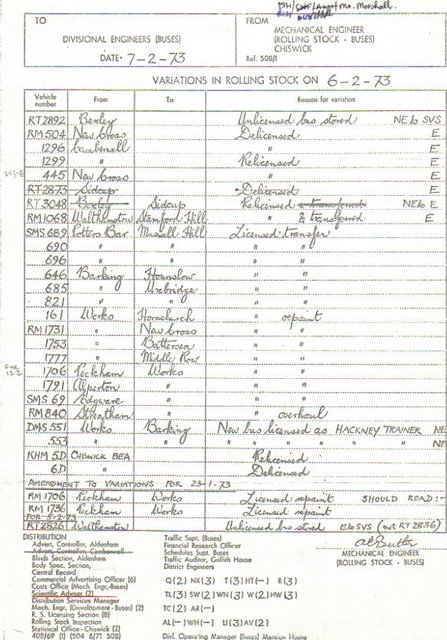 Mr. Marshall.
TO
DIVISIONAL ENGINEERS (BUSES)
DATE· 7-2-73
FROM
MECHANICAL ENGINEER
(ROLLING STOCK - BUSES)
CHISWICK
Ref. 508/1
VARIATIONS IN ROLLING STOCK ON 6-2-73
Vehicle number From To Reason for variation
RT2892 Bexley Unlicensed bus stored NE to SVS
RM504 New Cross Delicensed E
1296 Camberwell " E
1299 " Relicensed E
445 New Cross " E
RT2873 Sidcup Delicensed E
RT3048 Bexley Sidcup Relicensed & transferred NE to E
RM1068 Walthamstow Stamford Hill " & transferred E
SMS689 Potters Bar Muswell Hill Licensed transfer
690 " " " "
696 " " " "
646 Barking Hounslow " "
685 " Uxbridge " "
821 " " " "
161 Works Hornchurch " repaint
RM1731 " New Cross " "
1753 " Battersea " "
1777 " Middle Row " "
1706 Peckham Works " "
1791 Alperton " " "
SMS69 Edgware " " "
RM840 Streatham " " overhaul
DMS551 Works Barking New bus licensed as HACKNEY TRAINER NE
553 " " " " " " " NE
KHM 5D CHISWICK BEA Relicensed
6D " Delicensed
AMENDMENT TO VARIATIONS FOR 23-1-73
RM1706 Peckham Works Licensed repaint SHOULD READ:-
RM1736 Peckham Works Licensed repaint
RT2826 Walthamstow Unlicensed bus stored E to SVS (not RT2836)
DISTRIBUTION
Adver. Controller, Aldenham
Advert. Controller, Camberwell
Blinds Section, Aldenham
Body Spec. Section,
Central Record
Commercial Advertising Officer (6)
Costs Office (Mech. Engr./Buses)
Scientific Adviser (2)
Distribution Services Manager
Mech. Engr. (Development - Buses) (2)
R. S. Licensing Section (8)
Rolling Stock Inspection
Statistical Office - Chiswick (2)
408/69 (1) 504 6/71 508)
Traffic Supt. (Buses)
Financial Research Officer
Schedules Supt. Buses
Traffic Auditor, Griffith House
District Engineers
Q(2) NX(3) T(3) HT(-) R(3)
TL(3) SW(2) WN(3) W(2) HW(3)
TC(2) AR(-)
AL(-) WH(-) U(3) AV(2)
Divl. Operating Manager (Buses) Mansion House
MECHANICAL ENGINEER
(ROLLING STOCK - BUSES)